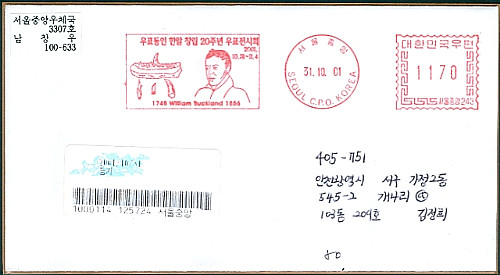 서울중앙우체국
3307호
남 창 우
100-633
우표동인 한밭 창립 20주년 우표전시회
2001.
10.31-11.4
1748 William Buckland 1856
서울중앙
31.10.01
SEOUL C.P.O. KOREA
대한민국우편
1170
서울중앙243
등기
1000114 125724 서울중앙
405-751
인천광역시 서구 가정2동
545-2 개나리
1동 204호 김정희
80